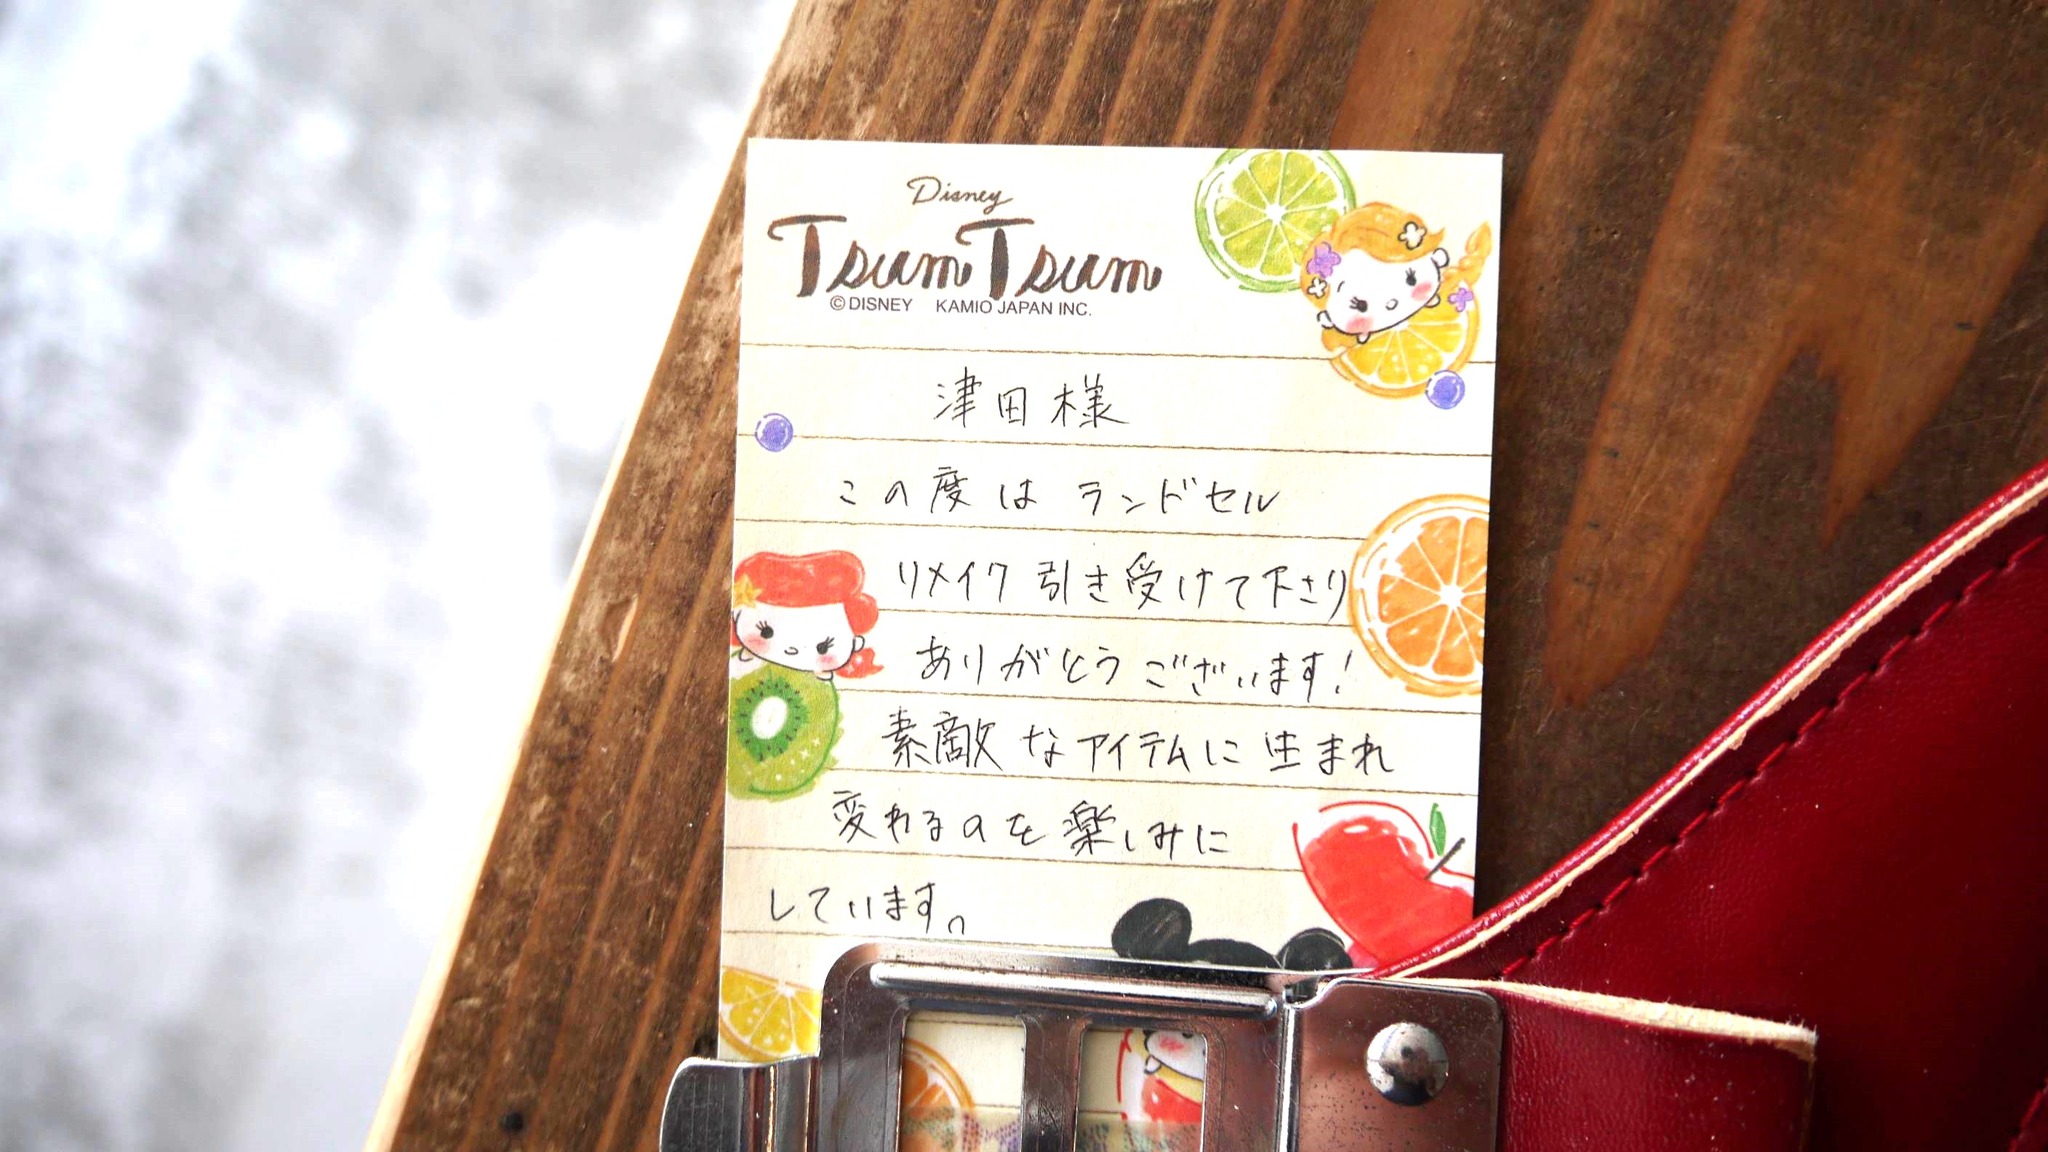 Disney
TsumTsum
©DISNEY KAMIO JAPAN INC.
津田様
この度は ランドセル
リメイク 引き受けて下さり
ありがとうございます!
素敵なアイテムに生まれ
変わるのを楽しみに
しています。